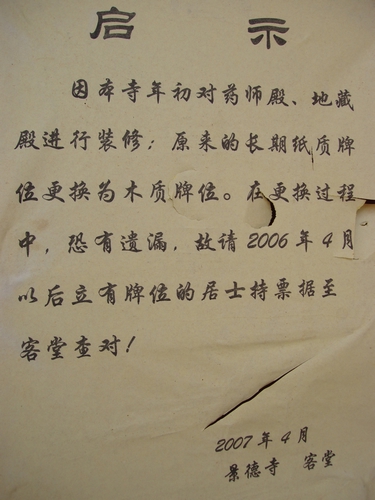 启示
因本寺年初对药师殿、地藏
殿进行装修；原来的长期纸质牌
位更换为木质牌位。在更换过程
中，恐有遗漏，故请2006年4月
以后立有牌位的居士持票据至
客堂查对！
2007年4月
景德寺 客堂